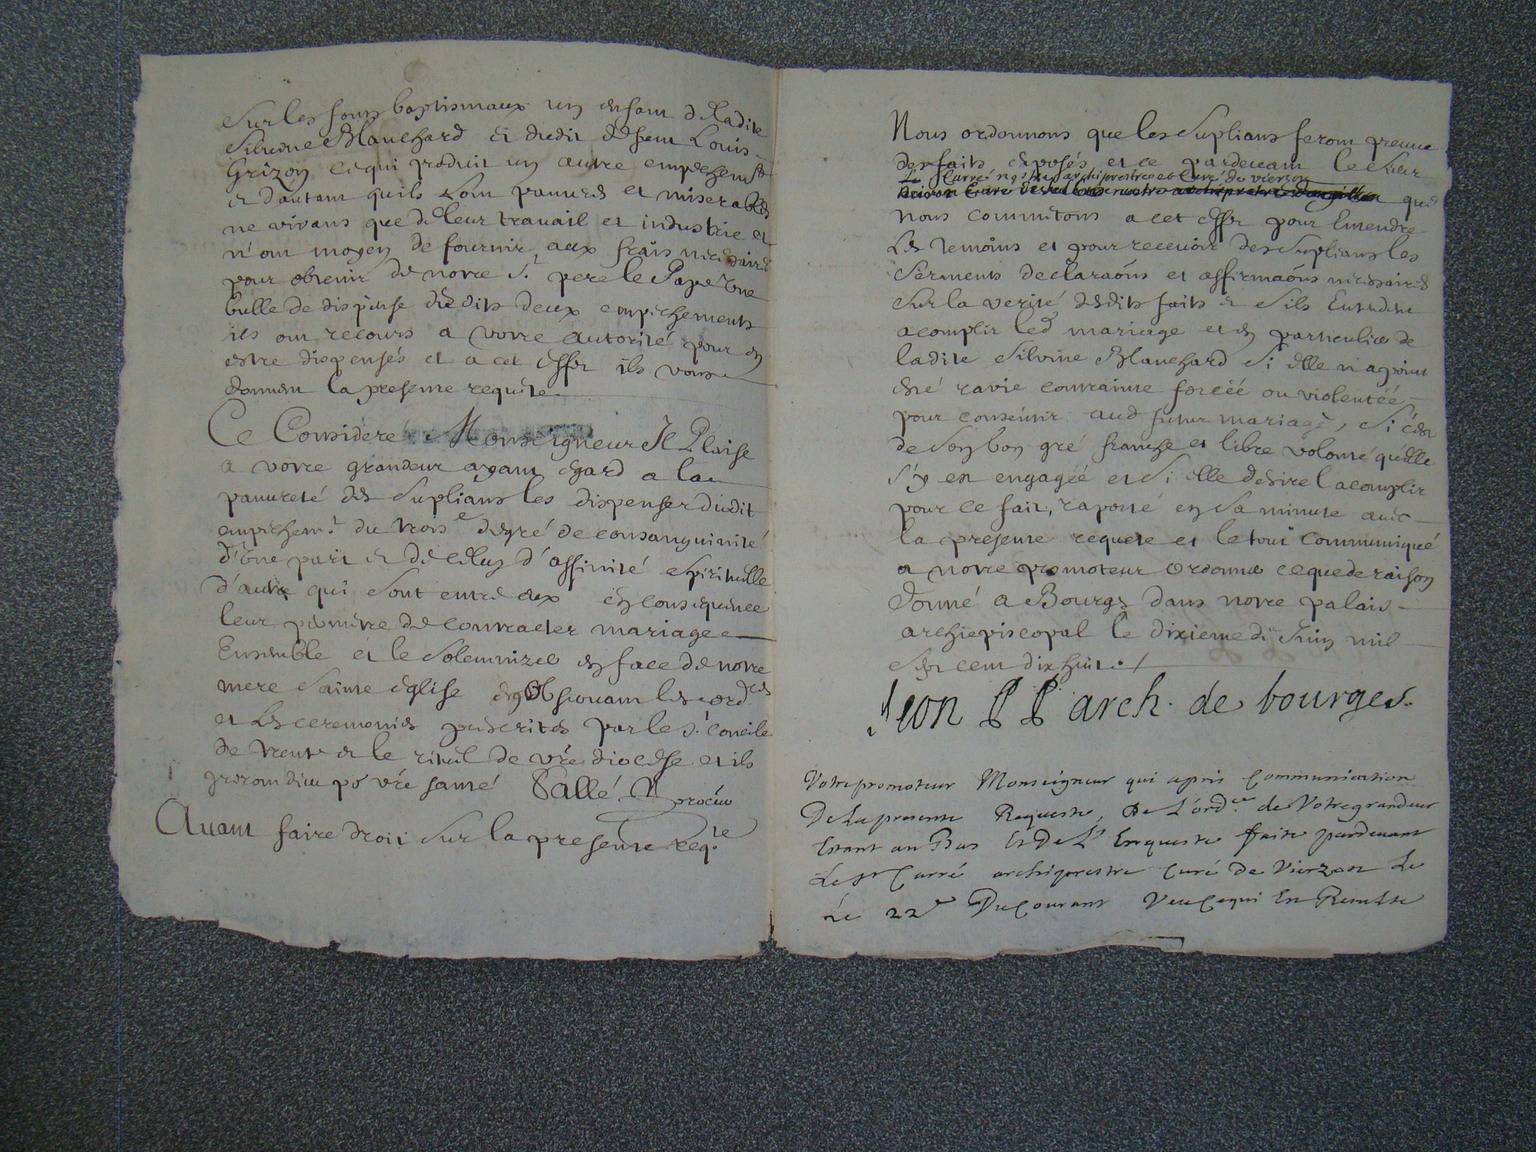 Sur les fons baptismaux un enfant de ladite
Silvine Blanchard et dudit deffunt Louis
Grizon ce qui produit un autre empechemt
et d'autant quils sont pauures et miserables
ne vivans que de leur trauail et industrie et
n'ont moyen de fournir aux frais necessaires
pour obtenir de notre St pere le Pape une
bulle de dispense desdits deux empechements
ils ont recours a votre autorité pour en
estre dispensés et a cet effet ils vous
donnent la presente requete
Ce Consideré Monseigneur Il Plaise
a votre grandeur ayant egard a la
pauureté des Suplians les dispenser dudit
empechemt du troise degré de consanguinité
d'une part et de celuy d'affinité spirituelle
d'autre qui sont entre eux en consequence
leur permettre de contracter mariage
Ensemble et le solemnizer en face de notre
mere sainte eglise en obseruant les ordces
et les ceremonies prescrites par le St concile
de trente et le rituel de vre diocese et ils
priront dieu po vre santé Vallé
Auant faire droit sur la presente reqte
Nous ordonnons que les Suplians feront preuue
des faits exposés et ce pardeuant le Sieur
Carré archiprestre et Curé de vierzon
que
nous commetons a cet effet pour entendre
les temoins et pour receuoir des Suplians les
serments declaraõns et affirmaõns necessaires
sur la verité desdits faits et s'ils entendent
acomplir led mariage et en particulier de
ladite Silvine Blanchard si elle n a point
esté ravie contrainte forcée ou violentée
pour consentir aud futur mariage, si c'est
de son bon gré franche et libre volonté qu'elle
s'y est engagée et si elle desire l acomplir
pour ce fait, raporté en sa minute auec
la presente requete et le tout communiqué
a notre promoteur ordonné ce que de raison
donné a Bourges dans notre palais
archiepiscopal le dixieme de Juin mil
sept cent dix huit.
Leon P P arch. de bourges.
Votre promoteur Monseigneur qui apris Communication
De la presente Requeste, De L'ordce de Votre grandeur
Estant au Bas Et De L' Enqueste faite pardeuant
Le Sr Carré archiprestre Curé de Vierzon Le
Le 22e Du Courant Veu Ce qui En Resulte